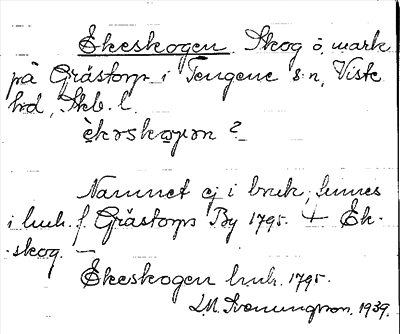 Ekeskogen. Skog o, mark
på Grästorp i Tengene s:n, Viste
hd, Skb. l.
èkəskoɡən ?
Namnet ej i bruk, finnes
i huh. f. Grästorps By 1795. + Ek-
skog. —
Ekeskogen huh. 1795.
1939.